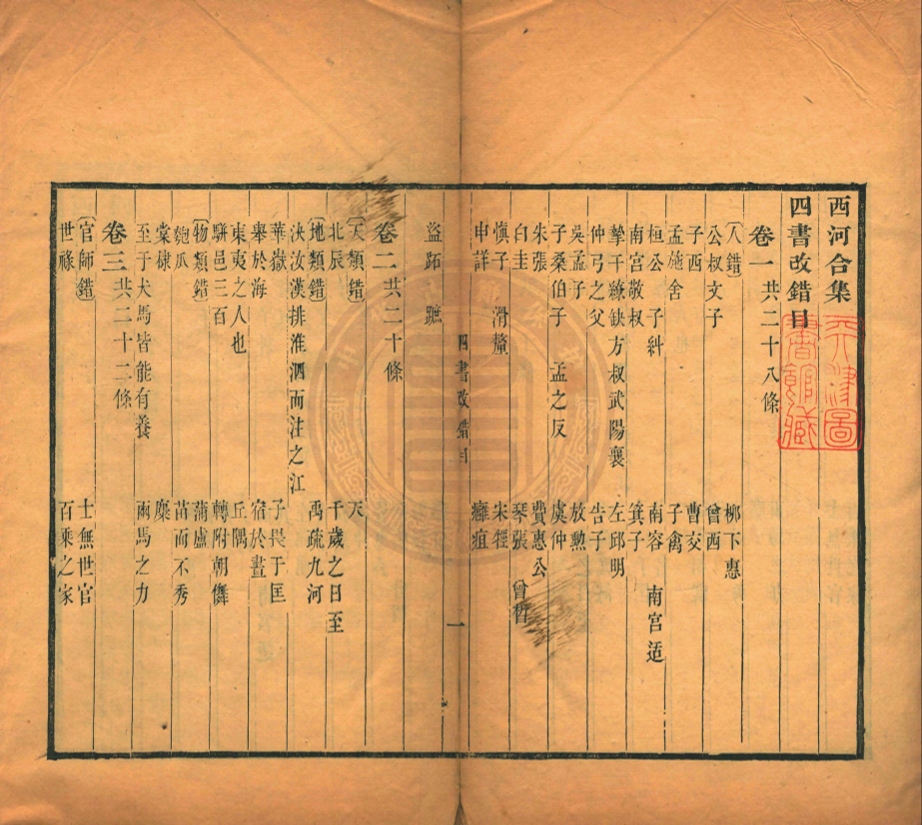 西河合集
四書改錯目
卷一 共二十八條
〔人錯〕 柳下惠
公叔文子 曾西
子西 曹交
孟施舍 子禽
桓公 子糾 南容 南宮适
南宮敬叔 箕子
摯干繚缺方叔武陽襄 左邱明
仲弓之父 告子
吳孟子 放勳
子桑伯子 孟之反 虞仲
朱張 費惠公
白圭 琴張 曾晳
慎子 滑釐 宋牼
申詳 癰疽
四書改錯目 一
盜跖 蹠
卷二 共二十條
〔天類錯〕 天
北辰 千歲之日至
〔地類錯〕 禹疏九河
決汝漢排淮泗而注之江
華嶽 子畏于匡
舉於海 宿於晝
東夷之人也 丘隅
駢邑三百 轉附朝儛
〔物類錯〕 蒲盧
匏瓜 苗而不秀
棠棣 麋
至于犬馬皆能有養 兩馬之力
卷三 共二十二條
〔官師錯〕 士無世官
世祿 百乘之家
天津圖書館藏